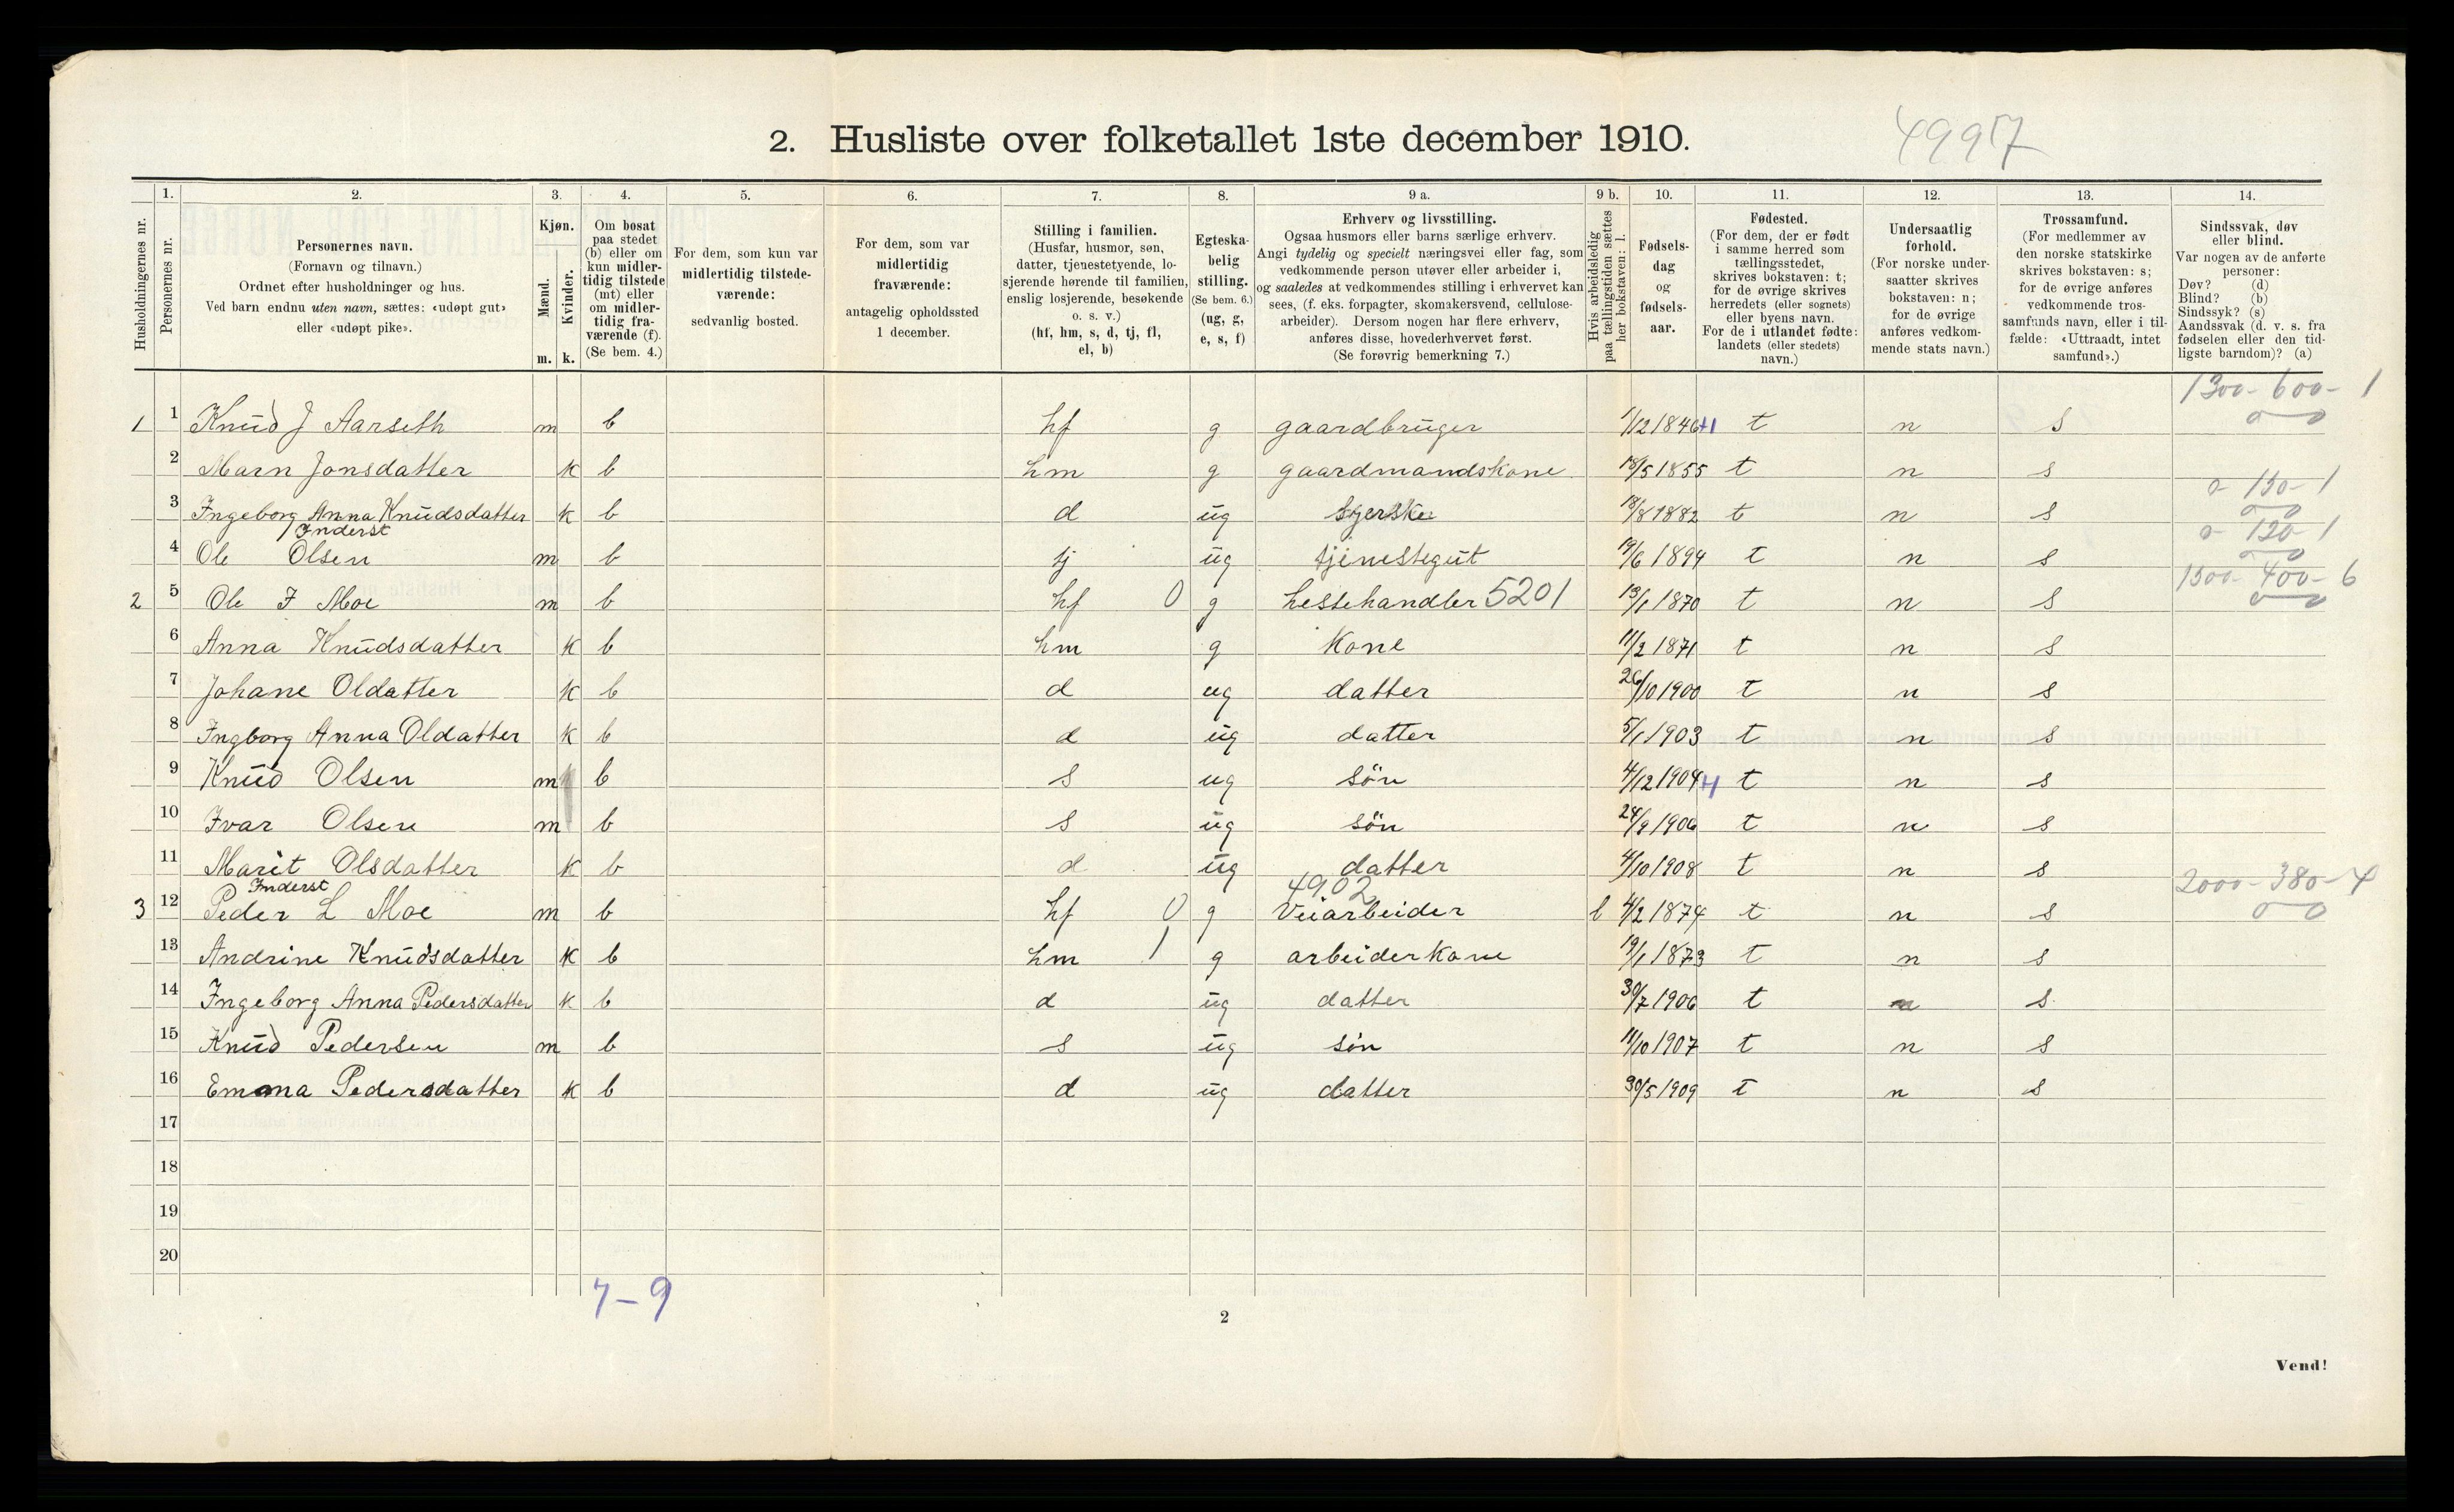 2. Husliste over folketallet 1ste december 1910.
4997
Husholdningernes nr.
1. Personernes nr.
2. Personernes navn.
(Fornavn og tilnavn.)
Ordnet efter husholdninger og hus.
Ved barn endnu uten navn, sættes: «udøpt gut»
eller «udøpt pike».
3. Kjøn.
Mænd. m.
Kvinder. k.
4. Om bosat
paa stedet
(b) eller om
kun midler-
tidig tilstede
(mt) eller
om midler-
tidig fra-
værende (f).
(Se bem. 4.)
5. For dem, som kun var
midlertidig tilstede-
værende:
sedvanlig bosted.
6. For dem, som var
midlertidig
fraværende:
antagelig opholdssted
1 december.
7. Stilling i familien.
(Husfar, husmor, søn,
datter, tjenestetyende, lo-
sjerende hørende til familien,
enslig losjerende, besøkende
o. s. v.)
(hf, hm, s, d, tj, fl,
el, b)
8. Egteska-
belig
stilling.
(Se bem. 6.)
(ug, g,
e, s, f)
9 a. Erhverv og livsstilling.
Ogsaa husmors eller barns særlige erhverv.
Angi tydelig og specielt næringsvei eller fag, som
vedkommende person utøver eller arbeider i,
og saaledes at vedkommendes stilling i erhvervet kan
sees, (f. eks. forpagter, skomakersvend, cellulose-
arbeider). Dersom nogen har flere erhverv,
anføres disse, hovederhvervet først.
(Se forøvrig bemerkning 7.)
9 b. Hvis arbeidsledig
paa tællingstiden sættes
her bokstaven: l.
10. Fødsels-
dag
og
fødsels-
aar.
11. Fødested.
(For dem, der er født
i samme herred som
tællingsstedet,
skrives bokstaven: t;
for de øvrige skrives
herredets (eller sognets)
eller byens navn.
For de i utlandet fødte:
landets (eller stedets)
navn.)
12. Undersaatlig
forhold.
(For norske under-
saatter skrives
bokstaven: n;
for de øvrige
anføres vedkom-
mende stats navn.)
13. Trossamfund.
(For medlemmer av
den norske statskirke
skrives bokstaven: s;
for de øvrige anføres
vedkommende tros-
samfunds navn, eller i til-
fælde: «Uttraadt, intet
samfund».)
14. Sindssvak, døv
eller blind.
Var nogen av de anførte
personer:
Døv? (d)
Blind? (b)
Sindssyk? (s)
Aandssvak (d. v. s. fra
fødselen eller den tid-
ligste barndom)? (a)
1300-600-1
1 1 Knud J Aarseth m b hf g gaardbruger 1/12 1846 +1 t n s
2 Marn Jonsdatter k b hm g gaardmandskone 18/5 1855 t n s
0-150-1
3 Ingeborg Anna Knudsdatter k b d ug syerske 18/8 1882 t n s
Inderst
0-120-1
4 Ole Olsen m b tj ug tjenestegut 19/6 1894 t n s
1500-400-6
2 5 Ole I Moe m b hf 0 g hestehandler 5201 13/1 1870 t n s
6 Anna Knudsdatter k b hm g Kone 11/2 1871 t n s
7 Johane Oldatter k b d ug datter 26/10 1900 t n s
8 Ingborg Anna Oldatter k b d ug datter 5/1 1903 t n s
9 Knud Olsen m b s ug sön 4/12 1904 +1 t n s
10 Ivar Olsen m b s ug sön 24/9 1906 t n s
11 Marit Olsdatter k b d ug datter 4/10 1908 t n s
Inderst 4902
2000-380-4
3 12 Peder L Moe m b hf 0 g Veiarbeider l 4/2 1874 t n s
13 Andrine Knudsdatter k b hm 1 g arbeiderkone 19/1 1873 t n s
14 Ingeborg Anna Pedersdatter k b d ug datter 30/7 1906 t n s
15 Knud Pedersen m b s ug sön 11/10 1907 t n s
16 Emma Pedersdatter k b d ug datter 30/5 1909 t n s
17
18
19
20
7-9
2
Vend!